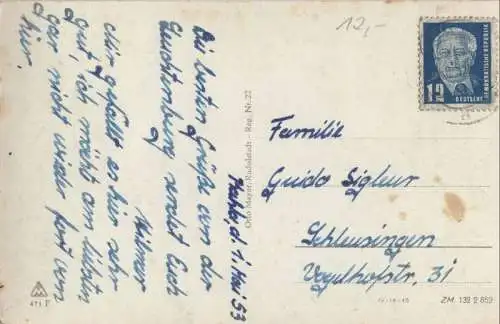 12,-
Die besten Grüße von der
Leuchtenburg sendet Euch
Hilmer
Mir gefällt es hier sehr
gut, ich möcht am liebsten
gar nicht wieder fort von
hier.
d. 1. Mai 53
Otto Meyer, Rudolstadt - Reg. Nr. 22
12
DEUTSCHE
DEMOKRATISCHE REPUBLIK
Familie
Guido Sigleur
Schleusingen
Vogelhofstr. 31
471 F
ZM. 132 2 852